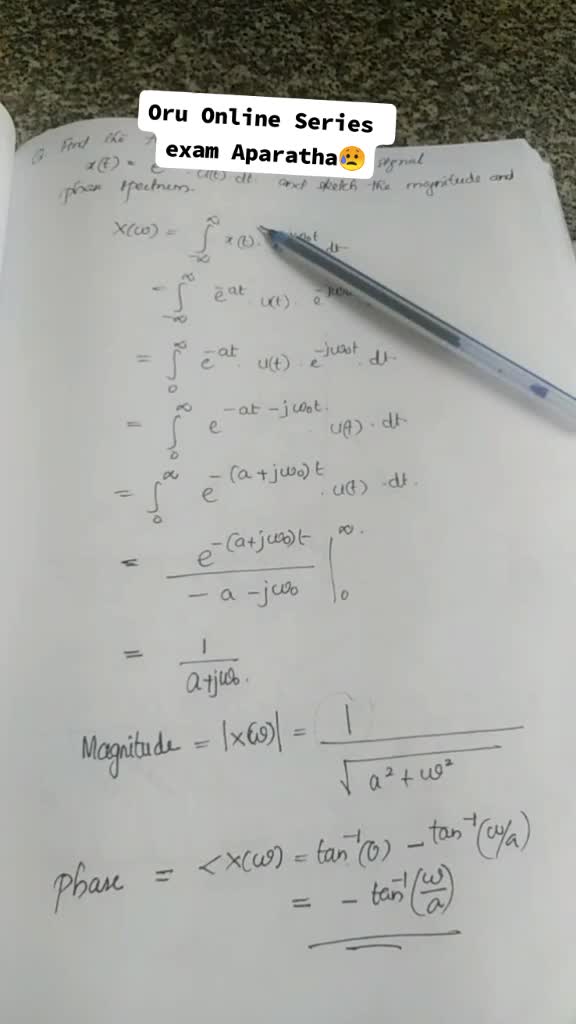 Oru Online Series
exam Aparatha😥
Q. Find the signal
x(t) = e u(t) dt. and sketch the magnitude and
phase spectrum.
X(ω) = ∫_{-∞}^{∞} x(t). ω₀t dt
= ∫_{-∞}^{∞} e^{-at}. u(t). e^{-jω₀
= ∫_{0}^{∞} e^{-at}. u(t). e^{-jω₀t}. dt.
= ∫_{0}^{∞} e^{-at-jω₀t}. u(t). dt
= ∫_{0}^{∞} e^{-(a+jω₀)t}. u(t) .dt.
= e^{-(a+jω₀)t} / -a-jω₀ |_{0}^{∞}.
= 1 / a+jω₀.
Magnitude = |X(ω)| = 1 / √(a²+ω²)
Phase = <X(ω) = tan⁻¹(0) - tan⁻¹(ω/a)
= - tan⁻¹(ω/a)